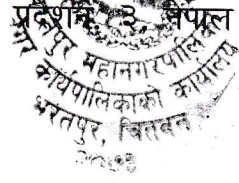 प्रदेश नं. ३, नेपाल
भरतपुर महानगरपालिका
नगर कार्यपालिकाको कार्यालय
भरतपुर, चितवन